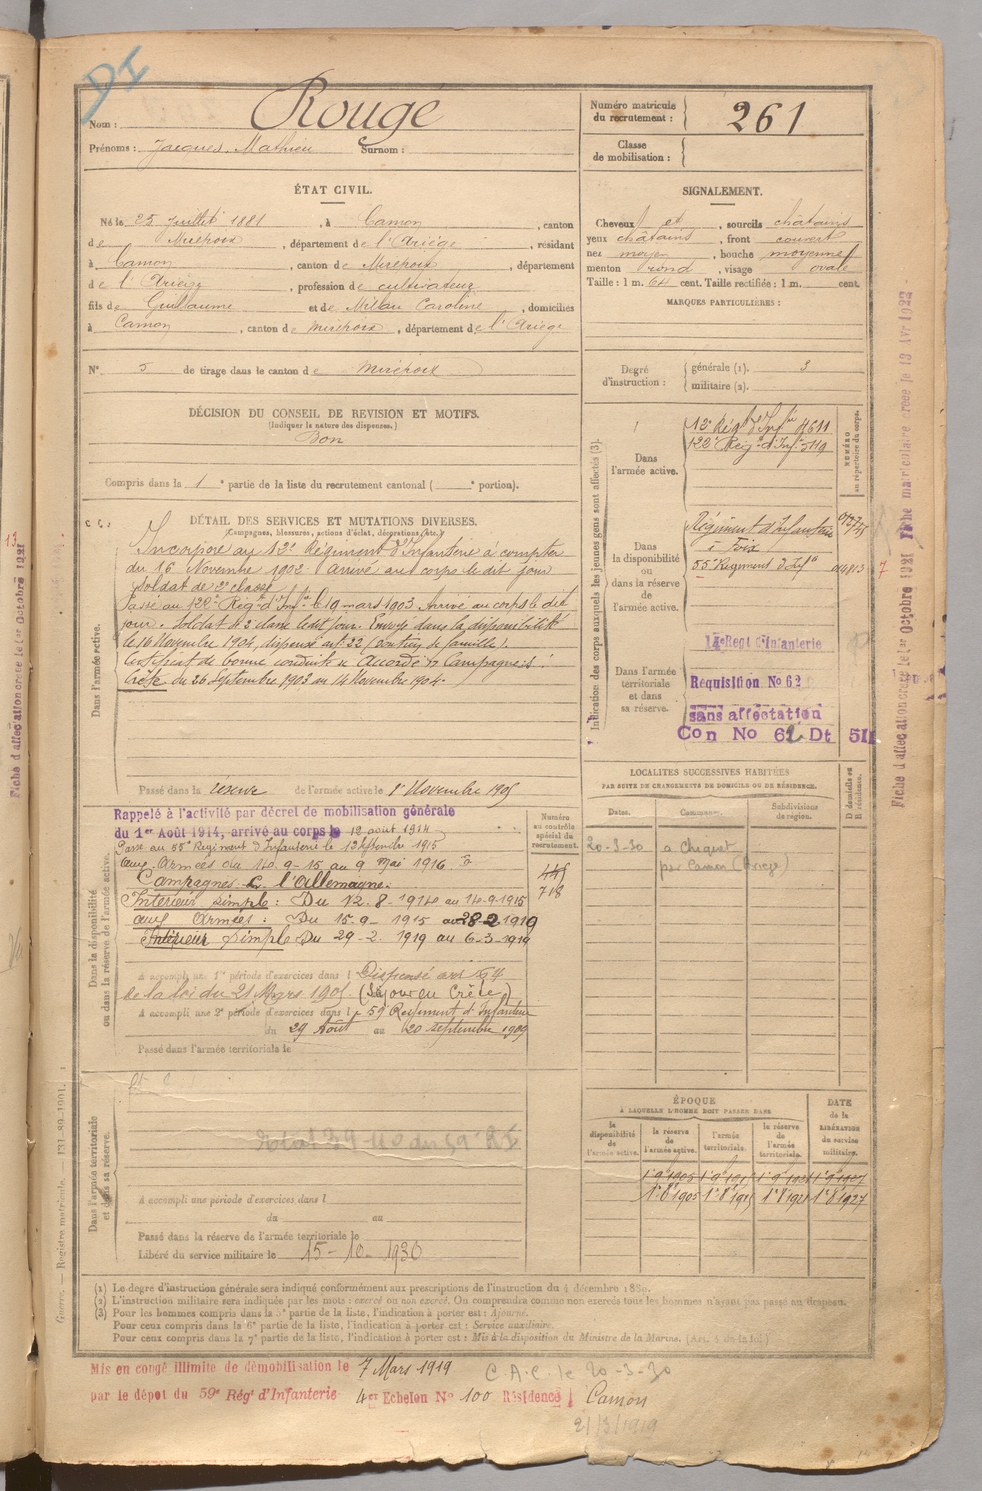 DI
Nom : Rougé
Prénoms : Jacques, Mathieu Surnom :
Numéro matricule du recrutement : 261
Classe de mobilisation :
ÉTAT CIVIL.
Né le 25 Juillet 1881, à Camon, canton
de Mirepoix, département de l'Ariège, résidant
à Camon, canton de Mirepoix, département
de l'Ariège, profession de cultivateur
fils de Guillaume et de Milau Caroline, domiciliés
à Camon, canton de Mirepoix, département de l'Ariège
N° 5 de tirage dans le canton de Mirepoix
DÉCISION DU CONSEIL DE REVISION ET MOTIFS.
(Indiquer la nature des dispenses.)
Bon
Compris dans la 1e partie de la liste du recrutement cantonal ( e portion).
SIGNALEMENT.
Cheveux et, sourcils châtains
yeux châtains, front couvert
nez moyen, bouche moyenne
menton rond, visage ovale
Taille : 1 m. 64 cent. Taille rectifiée : 1 m. cent.
MARQUES PARTICULIÈRES :
Degré d'instruction : générale (1). 3
militaire (2).
Indication des corps auxquels les jeunes gens sont affectés (3).
NUMÉRO au répertoire du corps.
Dans l'armée active.
12e Rég. d'Infie 4611
122e Rég. d'Inf. 5119
Dans la disponibilité ou dans la réserve de l'armée active.
Régiment d'Infanterie
Foix
55e Régiment d'Infie
Dans l'armée territoriale et dans sa réserve.
14e Regt d'Infanterie
Requisition No 62
sans affectation
Con No 62 Dt 511
DÉTAIL DES SERVICES ET MUTATIONS DIVERSES.
(Campagnes, blessures, actions d'éclat, décorations, etc.)
Dans l'armée active.
Incorporé au 12e Régiment d'Infanterie à compter
du 16 Novembre 1902 arrivé au corps le dit jour
soldat de 2e classe
Passé au 122e Rég. d'Infie le 19 mars 1903. Arrivé au corps le dit
jour. Soldat de 2e classe ledit jour. Envoyé dans la disponibilité
le 16 Novembre 1904, dispensé art. 22 (soutien de famille).
Certificat de bonne conduite « Accordé » Campagnes :
Crète du 26 Septembre 1903 au 14 Novembre 1904.
Passé dans la réserve de l'armée active le 1er Novembre 1905
Dans la disponibilité ou dans la réserve de l'armée active.
Numéro au contrôle spécial du recrutement.
445
718
Rappelé à l'activité par décret de mobilisation générale
du 1er Août 1914, arrivé au corps le 12 aout 1914
Passé au 55e Régiment d'Infanterie le 13 Septembre 1915
aux Armées du 14.9-15 au 9 Mai 1916
Campagnes C. l'Allemagne.
Intérieur simple : Du 12.8.1914 au 14-9-1915
aux Armées : Du 15.9-1915 au 28-2 1919
Intérieur simple Du 29-2-1919 au 6-3-1919
A accompli une 1re période d'exercices dans l Dispensé art
de la loi du 21 Mars 1905 (Séjour en Crète)
A accompli une 2e période d'exercices dans le 59e Régiment d'Infanterie
du 29 Août au 20 Septembre 1909
Passé dans l'armée territoriale le
Dans l'armée territoriale et dans sa réserve.
A accompli une période d'exercices dans l
du au
Passé dans la réserve de l'armée territoriale le
Libéré du service militaire le 15-10-1930
LOCALITES SUCCESSIVES HABITÉES
PAR SUITE DE CHANGEMENTS DE DOMICILE OU DE RÉSIDENCE.
Dates. Communes. Subdivisions de région. D domicile ou R résidence.
20-3-30 à
par Camon (Ariège)
ÉPOQUE
À LAQUELLE L'HOMME DOIT PASSER DANS
DATE de la LIBÉRATION du service militaire.
la disponibilité de l'armée active. la réserve de l'armée active. l'armée territoriale. la réserve de l'armée territoriale.
1er 8 1905 1er 8 1915 1er 8 1921 1er 8 1927
(1) Le degré d'instruction générale sera indiqué conformément aux prescriptions de l'instruction du 4 décembre 1889.
(2) L'instruction militaire sera indiquée par les mots : exercé ou non exercé. On comprendra comme non exercés tous les hommes n'ayant pas passé au drapeau.
(3) Pour les hommes compris dans la 5e partie de la liste, l'indication à porter est : Ajourné.
Pour ceux compris dans la 6e partie de la liste, l'indication à porter est : Service auxiliaire.
Pour ceux compris dans la 7e partie de la liste, l'indication à porter est : Mis à la disposition du Ministre de la Marine.
Mis en congé illimité de démobilisation le 7 Mars 1919 C.A.C. le 20-3-30
par le dépôt du 59e Régt d'Infanterie 4e Echelon No 100 Résidence Camon
21/3/1919
Fiche d'affectation créée le 1er Octobre 1921 Fiche matriculaire créée le 13 Avr 1922
Fiche d'affectation créée le 1er Octobre 1921
Guerre. — Registre matricule. — 131-89-1901.